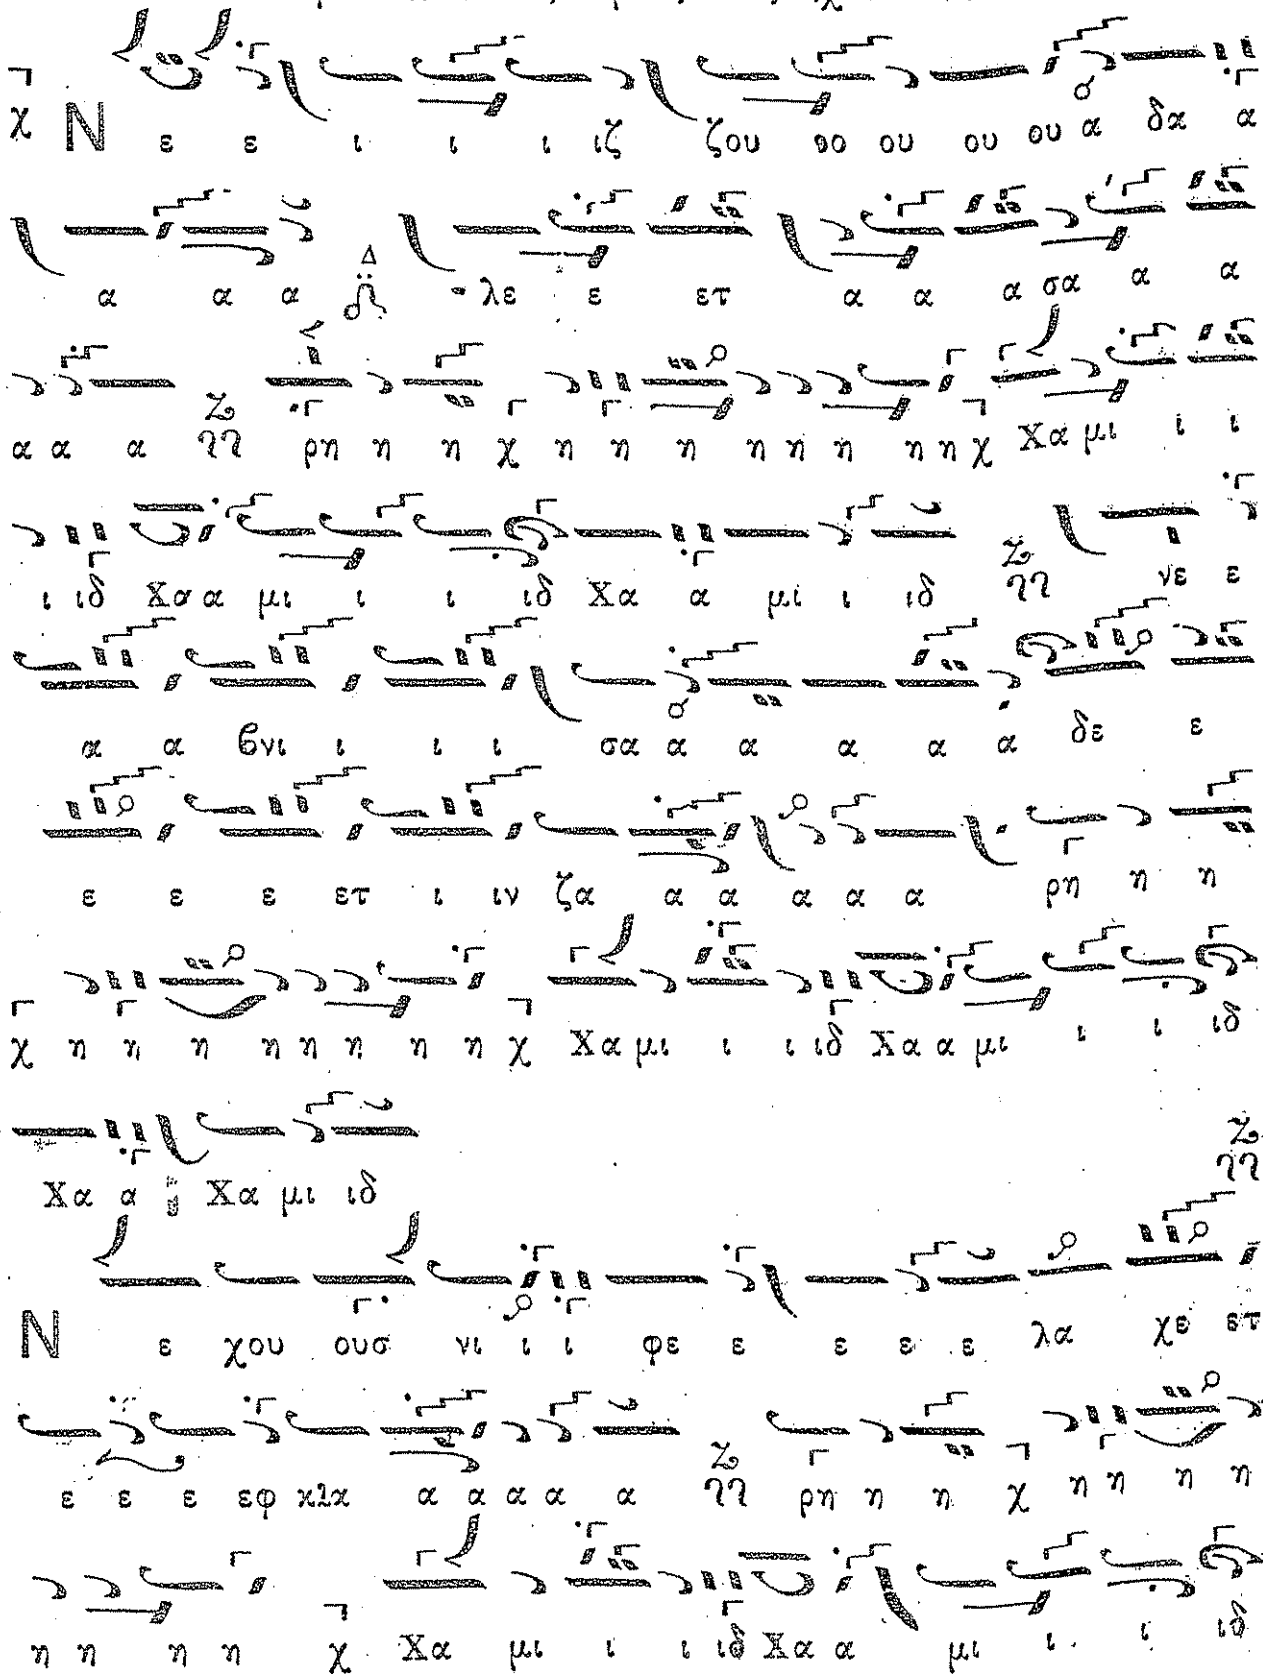 χ Ν ε ε ι ι ι ιζ ζου ου ου ου ου α δα α
α α α Δ λε ε ετ α α α σα α α
α α α Ζ ρη η η χ η η η η η η η η χ Χα μι ι ι
ι ιδ Χα α μι ι ι ιδ Χα α μι ι ιδ Ζ νε ε
α α βνι ι ι ι σα α α α α α δε ε
ε ε ε ετ ι ιν ζα α α α α α ρη η η
χ η η η η η η η η χ Χα μι ι ι ιδ Χα α μι ι ι ιδ
Χα α Χα μι ιδ Ζ
Ν ε χου ουσ νι ι ι φε ε ε ε ε λα χε ετ
ε ε ε εφ κλα α α α α α Ζ ρη η η χ η η η η
η η η η χ Χα μι ι ι ιδ Χα α μι ι ι ιδ